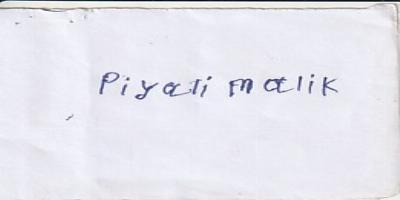 Piyali malik